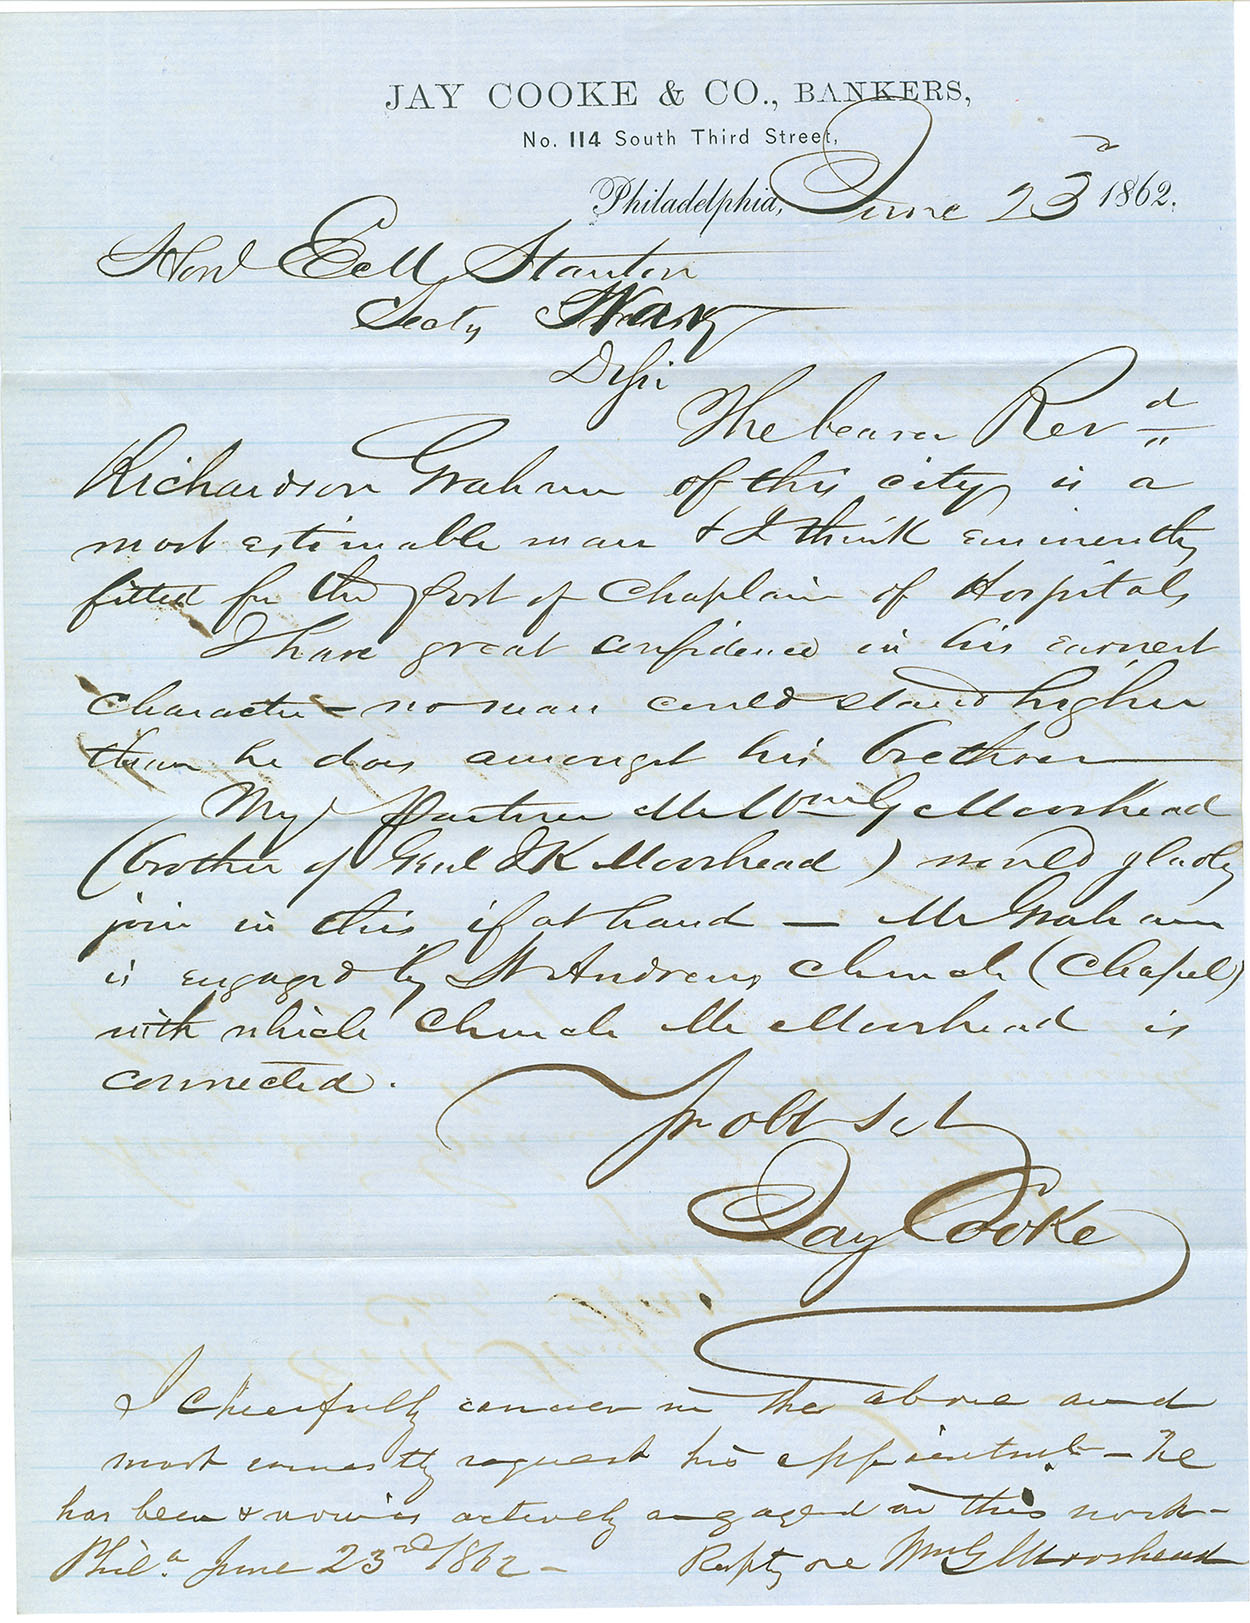 JAY COOKE & CO., BANKERS,
No. 114 South Third Street,
Philadelphia, June 23d 1862.
Honl Ed M Stanton
Secty War
D Sir
The bearer Revd
Richardson Graham of this city is a
most estimable man & I think eminently
fitted for the post of Chaplain of Hospitals
I have great confidence in his earnest
character – no man could stand higher
than he does amongst his brethren
My partner Mr Wm G Moorhead
(brother of Genl J K Moorhead) would gladly
join in this if at hand – Mr Graham
is engaged by St Andrews Church (Chapel)
with which Church Mr Moorhead is
connected.
Yr obt Svt
Jay Cooke
I cheerfully concur in the above and
most earnestly request his appointmt – he
has been & now is actively engaged in this work –
Phila. June 23rd 1862 – Respty &c Wm G Moorhead